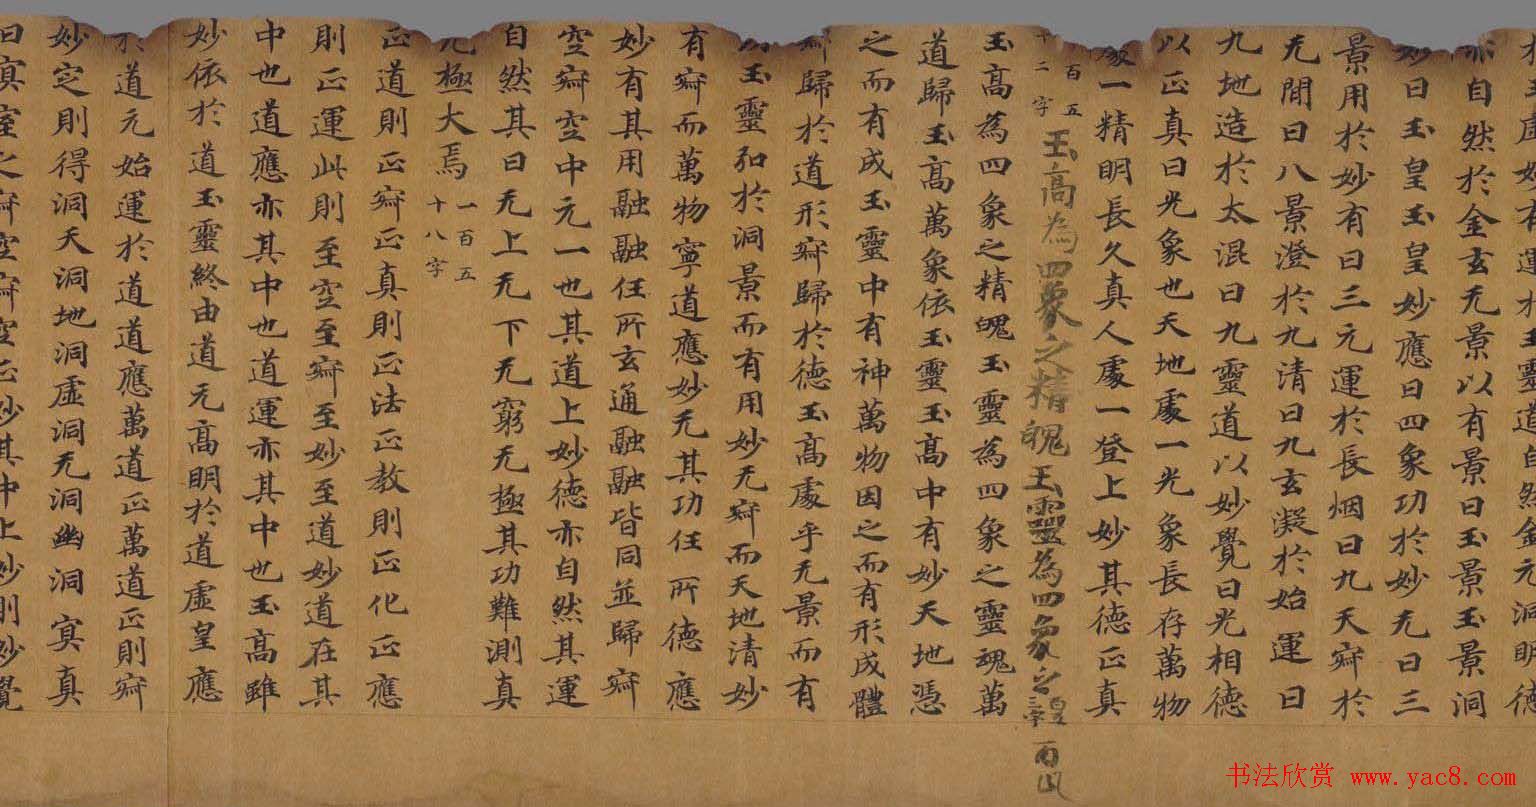 妙有運於玉靈道自然金元洞明德
亦自然於金玄无景以有景曰玉景玉景洞
妙曰玉皇玉皇妙應曰四象功於妙无曰三
景用於妙有曰三元運於長烟曰九天㝕於
无間曰八景澄於九清曰九玄凝於始運曰
九地造於太混曰九靈道以妙覺曰光相德
以正真曰光象也天地處一光象長存萬物
象一精明長久真人處一登上妙其德正真
百五十二字
玉高為四象之精魄玉靈為四象之
玉高為四象之精魄玉靈為四象之靈魂萬
道歸玉高萬象依玉靈玉高中有妙天地憑
之而有成玉靈中有神萬物因之而有形成體
㝕歸於道形㝕歸於德玉高處乎无景而有
玉靈弘於洞景而有用妙无㝕而天地清妙
有㝕而萬物寧道應妙无其功任所德應
妙有其用融融任所玄通融融皆同並歸㝕
空㝕空中元一也其道上妙德亦自然其運
自然其曰无上无下无窮无極其功難測真
无極大焉 一百五十八字
正道則正㝕正真則正法正教則正化正應
則正運此則至空至㝕至妙至道妙道在其
中也道應亦其中也道運亦其中也玉高雖
妙依於道玉靈終由道元高明於道虛皇應
於道元始運於道道應萬道正萬道正則㝕
妙定則得洞天洞地洞虛洞无洞幽洞冥真
曰冥室之㝕空㝕空正妙其中上妙則妙覺
书法欣赏 www.yac8.com